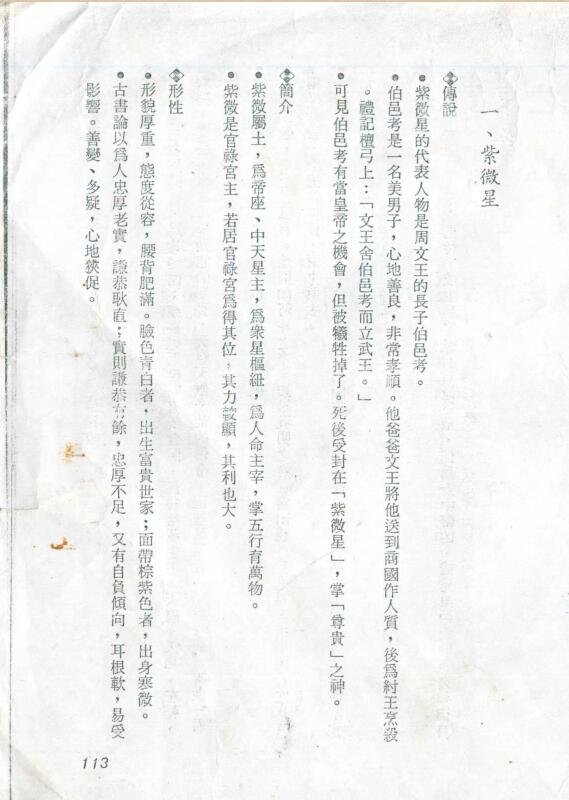 一、紫微星
傳說
•紫微星的代表人物是周文王的長子伯邑考。
•伯邑考是一名美男子，心地善良，非常孝順。他爸爸文王將他送到商國作人質，後爲紂王烹殺
。禮記檀弓上：「文王舍伯邑考而立武王。」
•可見伯邑考有當皇帝之機會，但被犧牲掉了。死後受封在「紫微星」，掌「尊貴」之神。
簡介
•紫微屬土，爲帝座、中天星主，爲衆星樞紐，爲人命主宰，掌五行育萬物。
•紫微是官祿宮主，若居官祿宮爲得其位，其力較顯，其利也大。
形性
•形貌厚重，態度從容，腰背肥滿。臉色青白者，出生富貴世家；面帶棕紫色者，出身寒微。
•古書論以爲人忠厚老實，謙恭耿直；實則謙恭有餘，忠厚不足，又有自負傾向，耳根軟，易受
影響。善變、多疑，心地狹促。
113